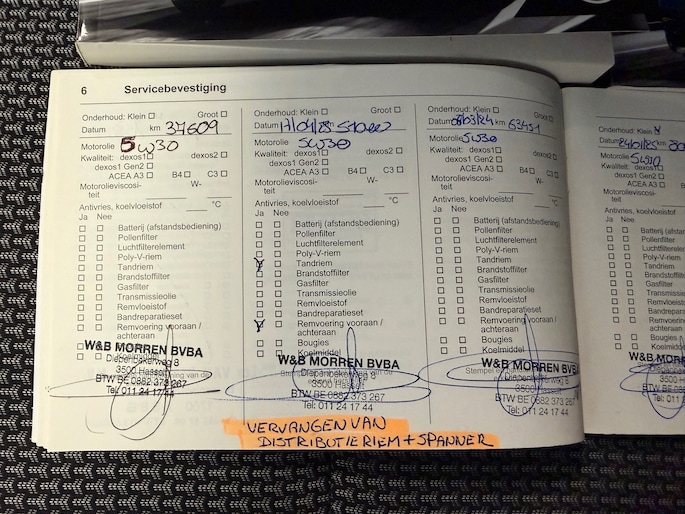 6 Servicebevestiging
Onderhoud: Klein Groot
Datum km 37609
Motorolie 5W30
Kwaliteit: dexos1 dexos2
dexos1 Gen2
ACEA A3 B4 C3
Motorolieviscosi- W-
teit
Antivries, koelvloeistof °C
Ja Nee
Batterij (afstandsbediening)
Pollenfilter
Luchtfilterelement
Poly-V-riem
Tandriem
Brandstoffilter
Gasfilter
Transmissieolie
Remvloeistof
Bandreparatieset
Remvoering vooraan /
achteraan
W&B MORREN BVBA
Diepenbekerweg 8
3500 Hasselt
BTW BE 0882 373 267
Tel: 011 24 17 44
Onderhoud: Klein Groot
Datum km
Motorolie 5W30
Kwaliteit: dexos1 dexos2
dexos1 Gen2
ACEA A3 B4 C3
Motorolieviscosi- W-
teit
Antivries, koelvloeistof °C
Ja Nee
Batterij (afstandsbediening)
Pollenfilter
Luchtfilterelement
Poly-V-riem
Tandriem
Brandstoffilter
Gasfilter
Transmissieolie
Remvloeistof
Bandreparatieset
Remvoering vooraan /
achteraan
Bougies
Koelmiddel
W&B MORREN BVBA
Diepenbekerweg 8
3500 Hasselt
BTW BE 0882 373 267
Tel: 011 24 17 44
VERVANGEN VAN
DISTRIBUTIERIEM + SPANNER
Onderhoud: Klein Groot
Datum 08/03/24 km 63451
Motorolie 5W30
Kwaliteit: dexos1 dexos2
dexos1 Gen2
ACEA A3 B4 C3
Motorolieviscosi- W-
teit
Antivries, koelvloeistof °C
Ja Nee
Batterij (afstandsbediening)
Pollenfilter
Luchtfilterelement
Poly-V-riem
Tandriem
Brandstoffilter
Gasfilter
Transmissieolie
Remvloeistof
Bandreparatieset
Remvoering vooraan /
achteraan
Bougies
Koelmiddel
W&B MORREN BVBA
Diepenbekerweg 8
3500 Hasselt
BTW BE 0882 373 267
Tel: 011 24 17 44
Onderhoud: Klein
Datum km
Motorolie
Kwaliteit: dexos1
dexos1 Gen2
ACEA A3
Motorolieviscosi-
teit
Antivries, koelvloeistof
Ja Nee
Batterij
Pollenfilter
Luchtfilterelement
Poly-V-riem
Tandriem
Brandstoffilter
Gasfilter
Transmissieolie
Remvloeistof
Bandreparatieset
Remvoering
achteraan
Bougies
Koelmiddel
W&B MORREN
3500
BTW BE 0882
Tel: 011 24